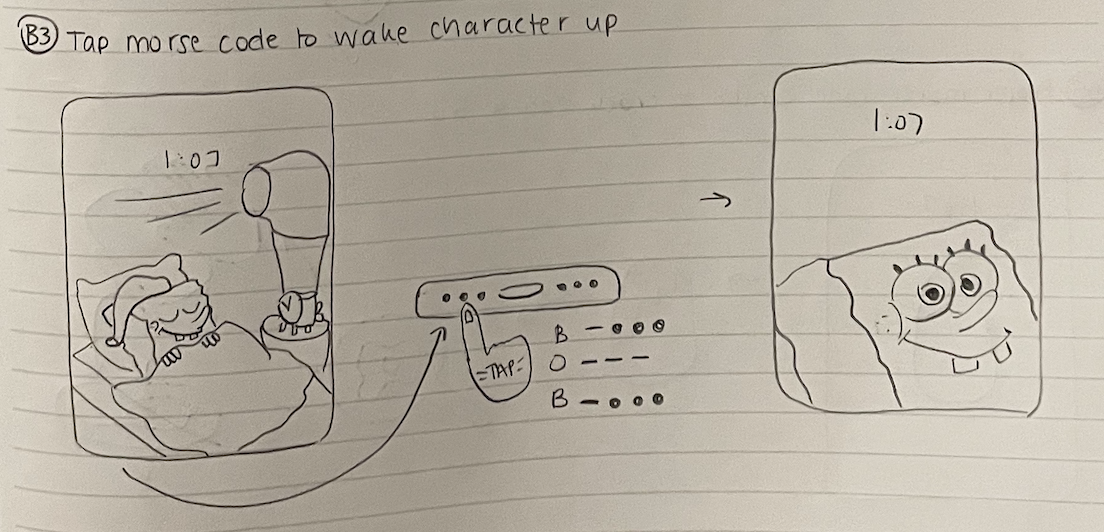 B3 Tap morse code to wake character up
1:07
1:07
=TAP=
B –•••
O –––
B –•••